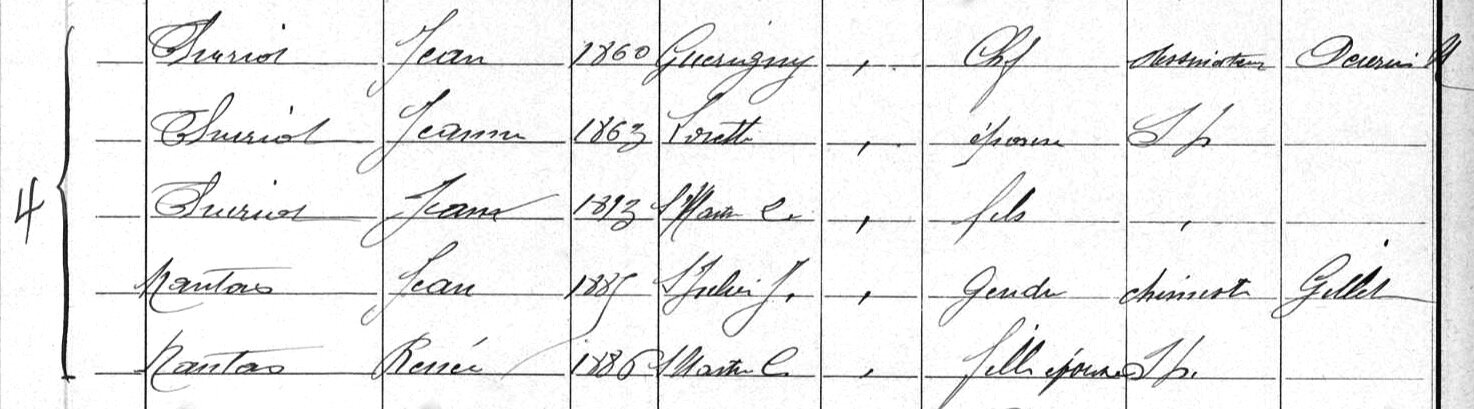 Thuriot Jean 1860 Guérigny , Chf dessinateur
4 Thuriot Jeanne 1863 Lorette , épouse S p.
Thuriot Jean 1893 St Martin C. , fils ,
Nantas Jean 1885 St Julien J. , Gendre chimiste Gillet
Nantas Renée 1886 St Martin C. , fille épouse S p.